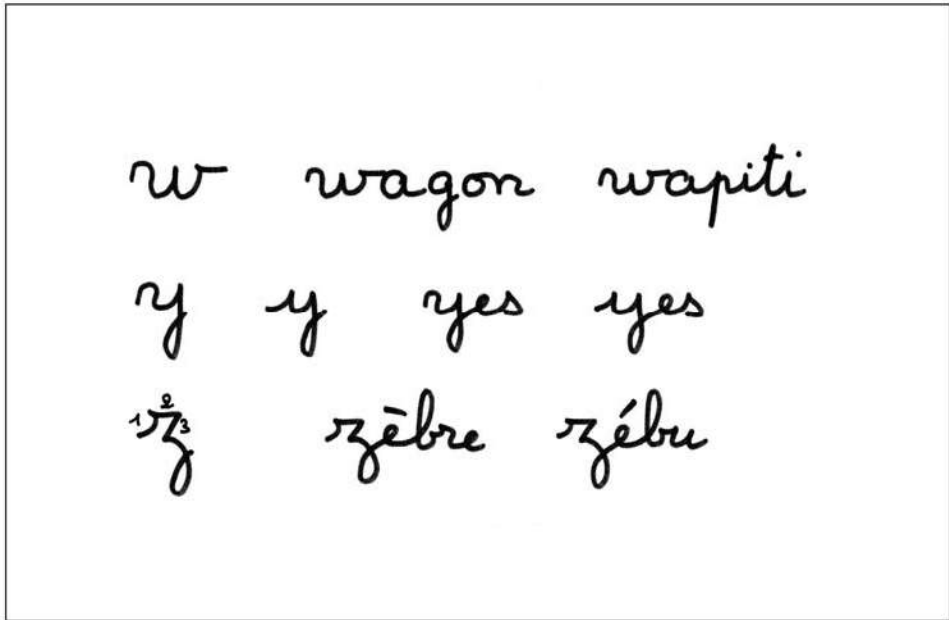 w wagon wapiti
y y yes yes
1 2 3 z zèbre zébu